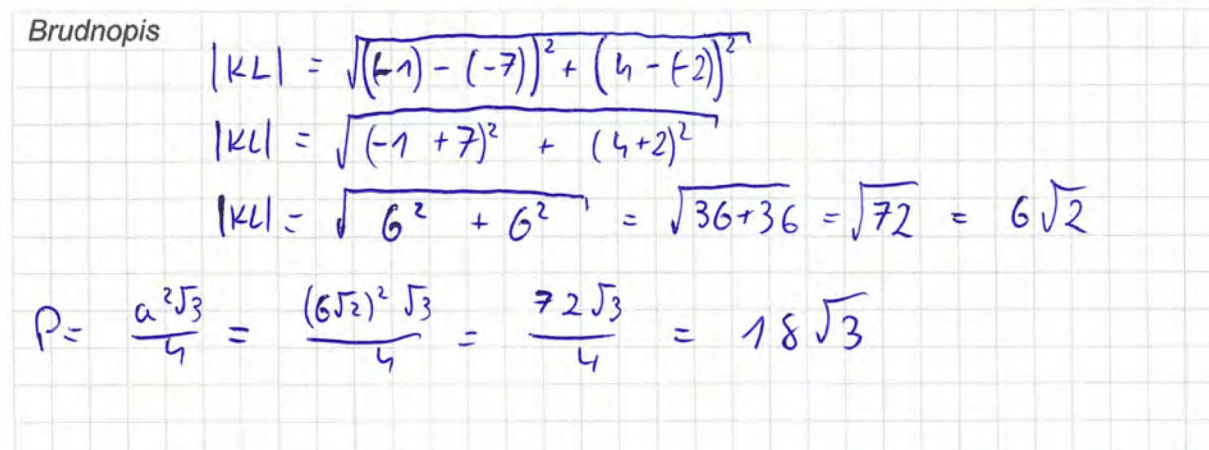 Brudnopis
|KL| = √((-1) - (-7))² + (4 - (-2))²
|KL| = √(-1 + 7)² + (4+2)²
|KL| = √6² + 6² = √36+36 = √72 = 6√2
P = a²√3/4 = (6√2)² √3/4 = 72√3/4 = 18√3